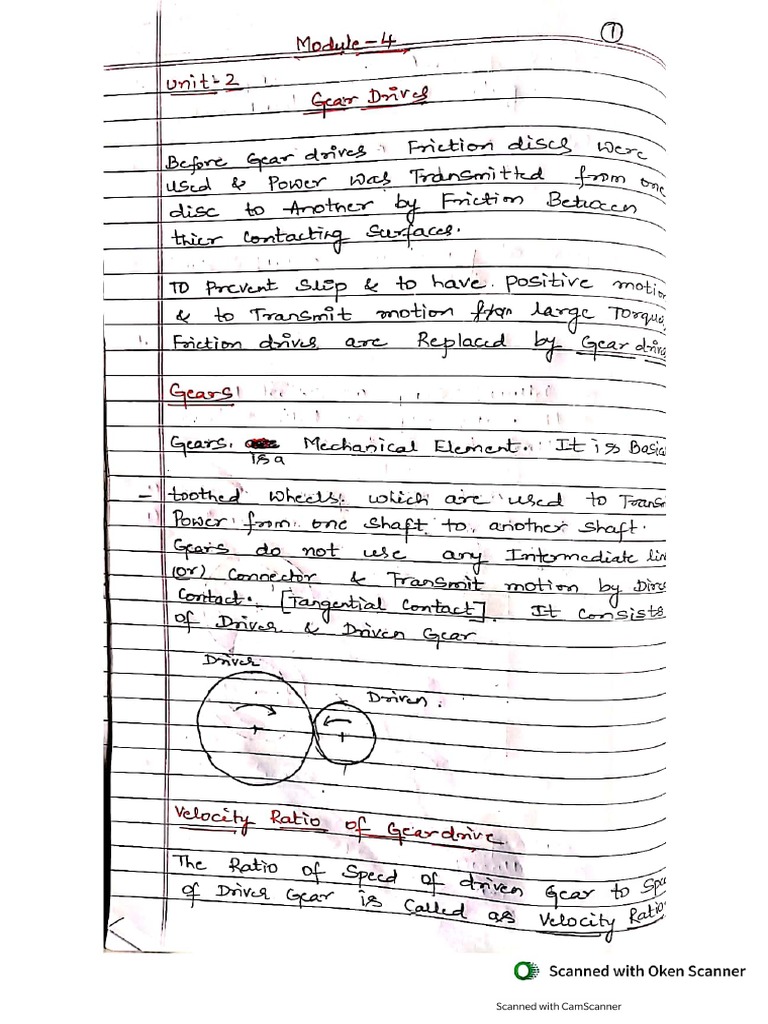 1
Module-4
Unit-2
Gear Drives
Before Gear drives Friction discs were
used & Power was Transmitted from one
disc to Another by Friction Between
thier contacting surfaces.
To Prevent slip & to have positive motion
& to Transmit motion large Torque,
Friction drives are Replaced by Gear drive
Gears
Gears, is a Mechanical Element. It is Basica
- toothed wheels which are used to Transm
Power from one shaft to another shaft.
Gears do not use any Intermediate lin
(or) connector & Transmit motion by Direc
contact. [Tangential Contact]. It consists
of Driver & Driven Gear
Driver
Driven.
Velocity Ratio of Gear drive
The Ratio of Speed of driven Gear to Spe
of Driver Gear is called as Velocity Ratio
Scanned with Oken Scanner
Scanned with CamScanner